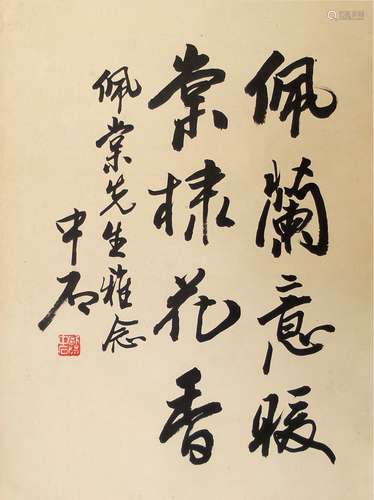 佩蘭意暖
棠棣花香
佩棠先生雅念
中石